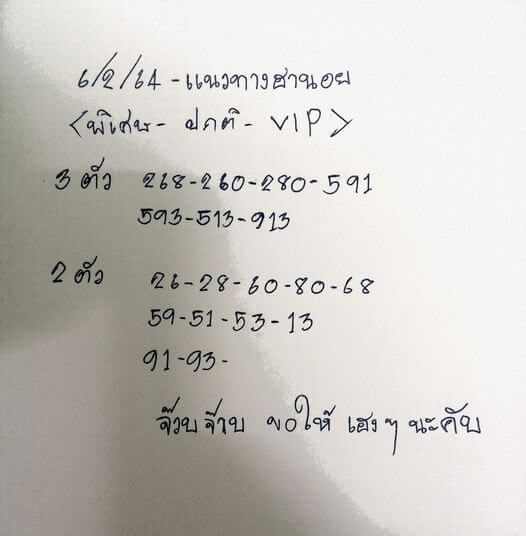 6/2/64 - แนวทางฮานอย
<พิเศษ - ปกติ - VIP>
3 ตัว 268-260-280-591
593-513-913
2 ตัว 26-28-60-80-68
59-51-53-13
91-93-
จ๊วบจ๊าบ ขอให้ เฮงๆ นะคับ